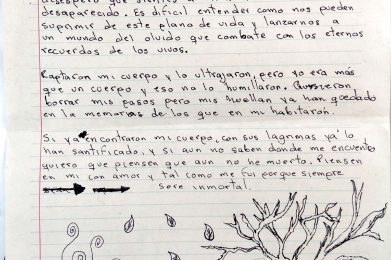 desaparecido. Es dificil entender como nos pueden
suprimir de este plano de vida y lanzarnos a
un mundo del olvido que combate con los eternos
recuerdos de los vivos.
Raptaron mi cuerpo y lo ultrajaron, pero yo era más
que un cuerpo y eso no lo humillaron. Quisieron
borrar mis pasos pero mis huellan ya han quedado
en la memorias de los que en mi habitaron.
Si ya encontraron mi cuerpo, con sus lagrimas ya lo
han santificado, y si aun no saben donde me encuentro
quiero que piensen que aun no he muerto. Piensen
en mi con amor y tal como me fui porque siempre
sere inmortal.